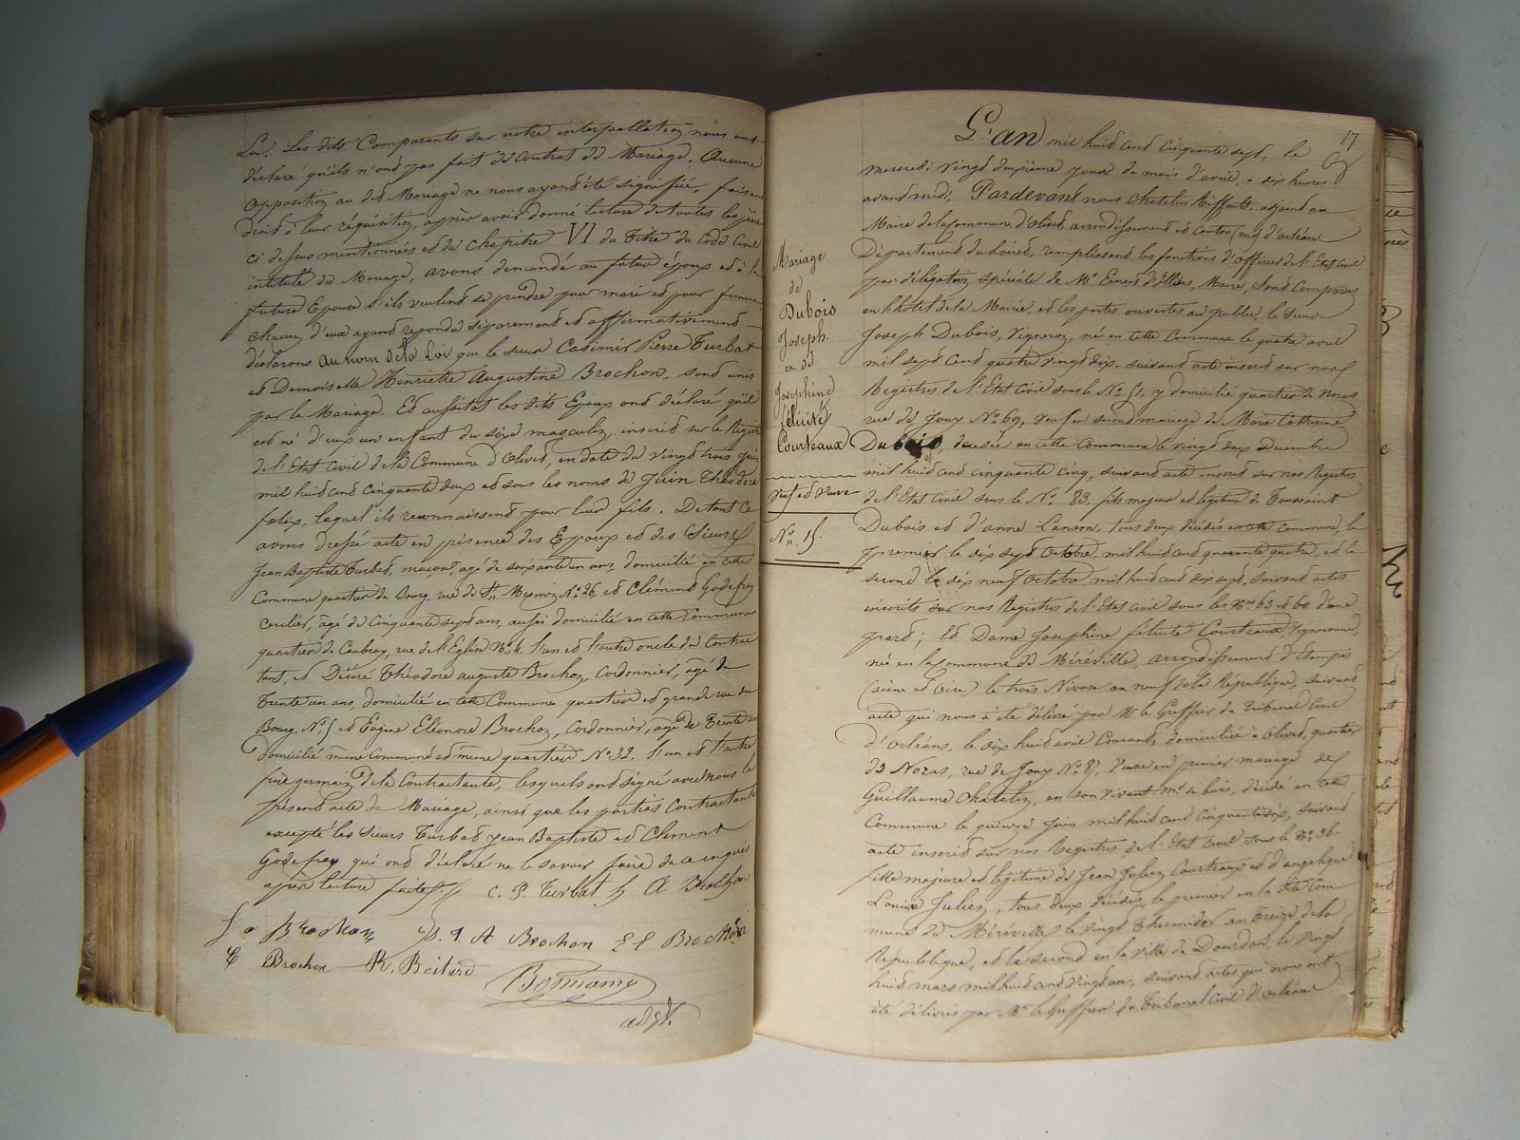 Lu. Les dits Comparants sur notre interpellation nous ont
déclaré qu'ils n'ont pas fait de Contrat de Mariage. Aucune
opposition au dit Mariage ne nous ayant été signifiée, faisant
droit à leur réquisition, après avoir donné lecture de toutes les pièces
ci dessus mentionnées et du chapitre VI du Titre du Code Civil
intitulé du Mariage, avons demandé au futur époux et à la
future Epouse s'ils veulent se prendre pour mari et pour femme
chacun d'eux ayant répondu séparément et affirmativement
déclarons au nom de la Loi que le sieur Casimir Pierre Turbat
et Demoiselle Henriette Augustine Brochon, sont unis
par le Mariage. Et aussitôt les dits Epoux ont déclaré qu'il
est né d'eux un enfant du sexe masculin, inscrit sur le Registre
de l'Etat Civil de la Commune d'Olivet, en date du vingt trois juin
mil huit cent cinquante deux et sous les noms de Juin Théodore
lequel ils reconnaissent pour leur fils. De tout ce
avons dressé acte en présence des Epoux et des Sieurs
Jean Baptiste Turbat, maçon, agé de soixante un ans, domicilié en cette
Commune quartier du Bourg, rue de St. Mesmin No. 26 et Clément Godefroy
agé de Cinquante sept ans, aussi domicilié en cette Commune
quartier de Caubray, rue de l'Eglise No. l'un et l'autre oncle du Contrac
tant, et Désiré Théodore auguste Brochon, Cordonnier, agé de
Trente un ans, domicilié en cette Commune quartier et grande rue du
Bourg, No. 5 et Eugène Eléonore Brochon, Cordonnier, agé de Trente
domicilié même Commune et même quartier No. 32. l'un et l'autre
frère germain de la Contractante, lesquels ont signé avec nous le
présent acte de Mariage, ainsi que les parties Contractantes
excepté les sieurs Turbat Jean Baptiste et Clément
Godefroy qui ont déclaré ne le savoir faire de ce enquis
après lecture faite. C. P. Turbat. h A Brochon
Brochon D. T A Brochon E E Brochon
Brochon R. Beitard
adjt.
17
L'an mil huit cent Cinquante sept, le
mercredi vingt deuxième jour du mois d'avril, à dix heures
avant midi, Pardevant nous Chatelin Riffault, adjoint au
Maire de la Commune d'Olivet, arrondissement et Canton (sud) d'orléans
Département du Loiret, remplissant les fonctions d'officier de l'Etat Civil
par délégation spéciale de Mr. Maire, sont comparus
en l'hôtel de la Mairie et les portes ouvertes au public, le Sieur
Joseph Dubois, Vigneron, né en cette Commune le quatre avril
mil sept cent quatre vingt dix, suivant acte inscrit sur nos
Registres de l'Etat Civil sous le No. 51, y domicilié quartier de Noras
rue de Jouy No. 69, veuf en second mariage de Marie Catherine
Dubois, décédée en cette Commune le vingt deux Décembre
mil huit cent cinquante cinq, suivant acte inscrit sur nos Registres
de l'Etat Civil sous le No. 83, fils majeur et légitime de Toussaint
Dubois et d'anne Lanson, tous deux décédés en cette commune, le
premier le dix sept octobre mil huit cent quarante quatre, et la
seconde le dix neuf octobre mil huit cent dix sept, suivant actes
inscrits sur nos Registres de l'Etat Civil sous les Nos. 63 et 60 d'une
part; Et Dame Joséphine félicité Courteaux Vigneronne,
née en la Commune de Méréville, arrondissement d'Etampes
(seine et oise) le trois Nivose an neuf de la République, suivant
acte qui nous a été délivré par Mr. le Greffier du Tribunal Civil
d'Orléans, le dix huit avril Courant, domiciliée à Olivet, quartier
de Noras, rue de Jouy No. 81, Veuve en premier mariage de
Guillaume Chatelin, en son vivant md. de bois, décédé en cette
Commune le quinze Juin mil huit cent cinquante six, suivant
acte inscrit sur nos Registres de l'Etat Civil sous le No. 36.
fille majeure et légitime de Jean Julien Courteaux et d'angélique
Louise Julien, tous deux décédés, le premier en la dite Com
mune de Méréville le vingt Thermidor an treize de la
République, et la seconde en la ville de Dourdan, le vingt
huit mars mil huit cent vingt un, suivant actes qui nous ont
été délivrés par Mr. le Greffier du Tribunal Civil d'orléans
Mariage
de
Dubois
Joseph
et de
Joséphine
félicité
Courteaux
Veuf et Veuve
No. 15.